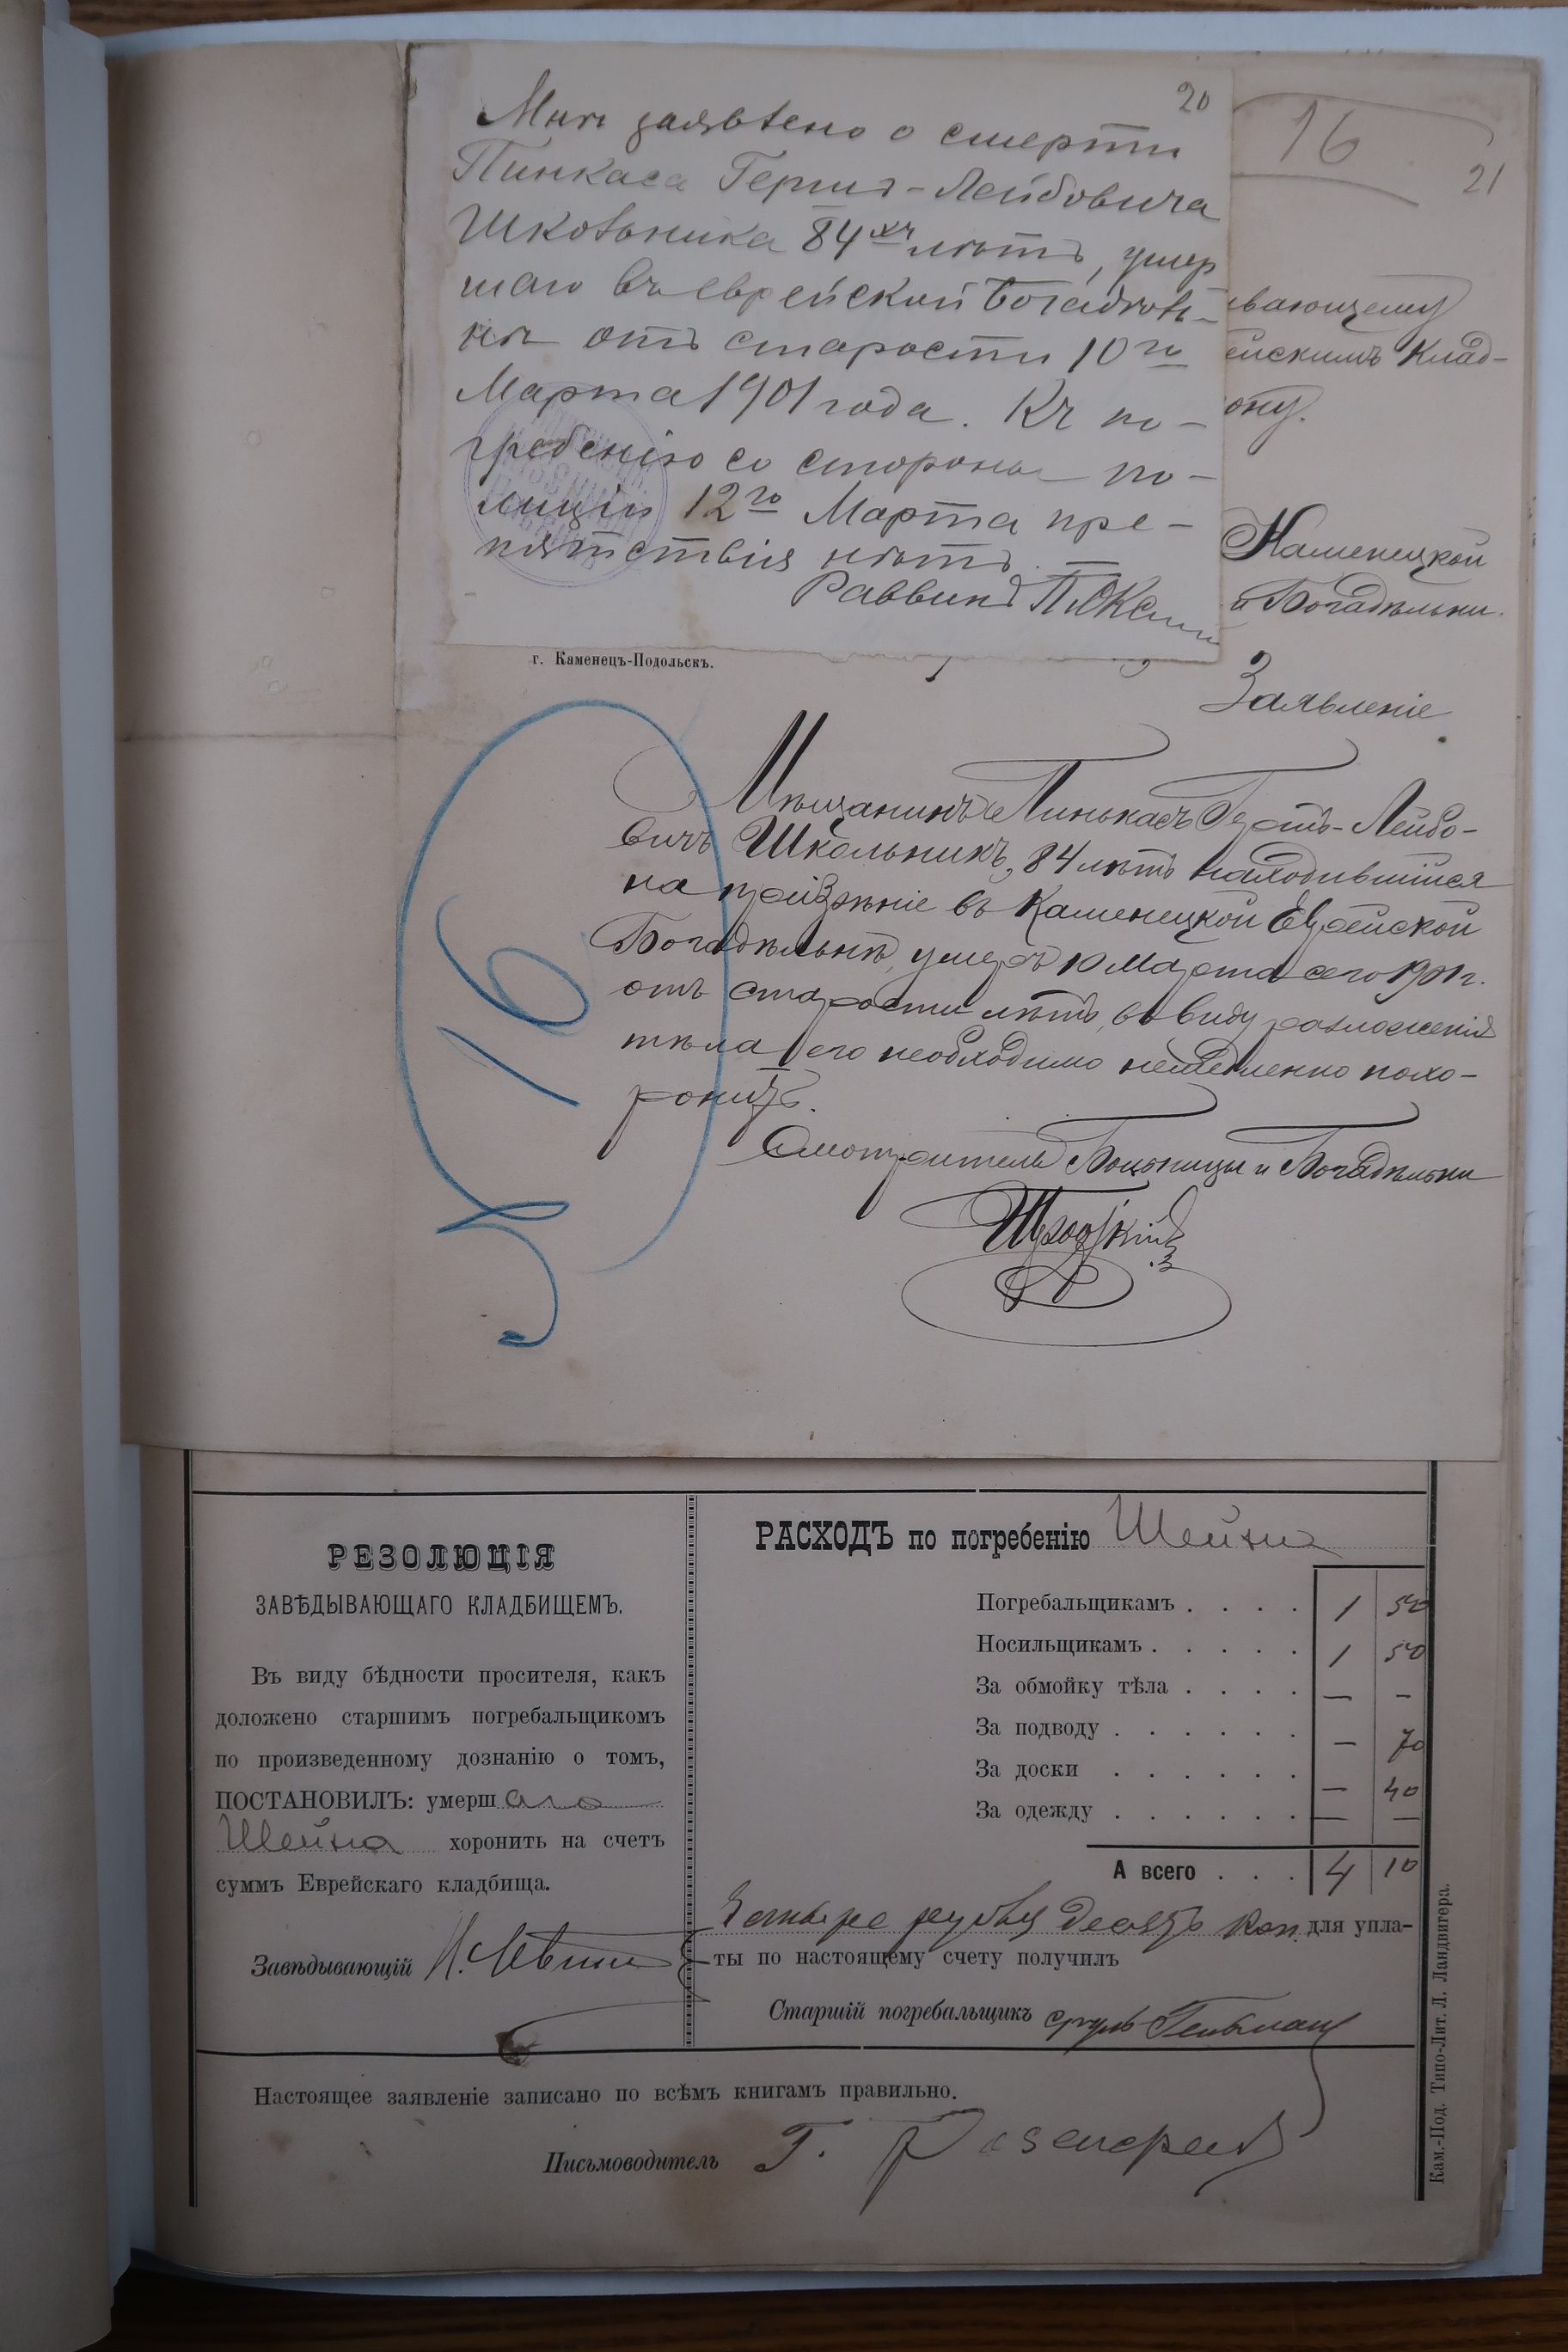 20
Мнѣ заявлено о смерти
Пинкаса Гершъ-Лейбовича
Школьника 84хъ лѣтъ, умер
шаго въ еврейской богадѣль-
нѣ отъ старости 10го
Марта 1901 года. Къ по-
гребенію со стороны по-
лиціи 12го Марта пре-
пятствія нѣтъ.
Раввинъ
16
21
вающему
ейскимъ Клад-
ону.
Каменецкой
и Богадѣльни.
г. Каменецъ-Подольскъ.
Заявленіе
Мѣщанинъ Пинькасъ Гершъ-Лейбо-
вичъ Школьникъ, 84 лѣтъ находившійся
на призрѣніе въ Каменецкой Еврейской
Богадѣльнѣ, умеръ 10 Марта сего 1901 г.
отъ старости лѣтъ, въ виду разложенія
тѣла его необходимо немедленно похо-
ронить.
Смотритель Больницы и Богадѣльни
16
РЕЗОЛЮЦІЯ
ЗАВѢДЫВАЮЩАГО КЛАДБИЩЕМЪ.
Въ виду бѣдности просителя, какъ
доложено старшимъ погребальщикомъ
по произведенному дознанію о томъ,
ПОСТАНОВИЛЪ: умерш аго
хоронить на счетъ
суммъ Еврейскаго кладбища.
Завѣдывающій
РАСХОДЪ по погребенію
Погребальщикамъ . . . . 1 50
Носильщикамъ . . . . . 1 50
За обмойку тѣла . . . . — —
За подводу . . . . . . — 70
За доски . . . . . . — 40
За одежду . . . . . . — —
А всего . . . 4 10
Четыре рубля десять коп. для упла-
ты по настоящему счету получилъ
Старшій погребальщикъ Сруль Гельман
Настоящее заявленіе записано по всѣмъ книгамъ правильно.
Письмоводитель Г.
Кам.-Под. Типо-Лит. Л. Ландвигера.